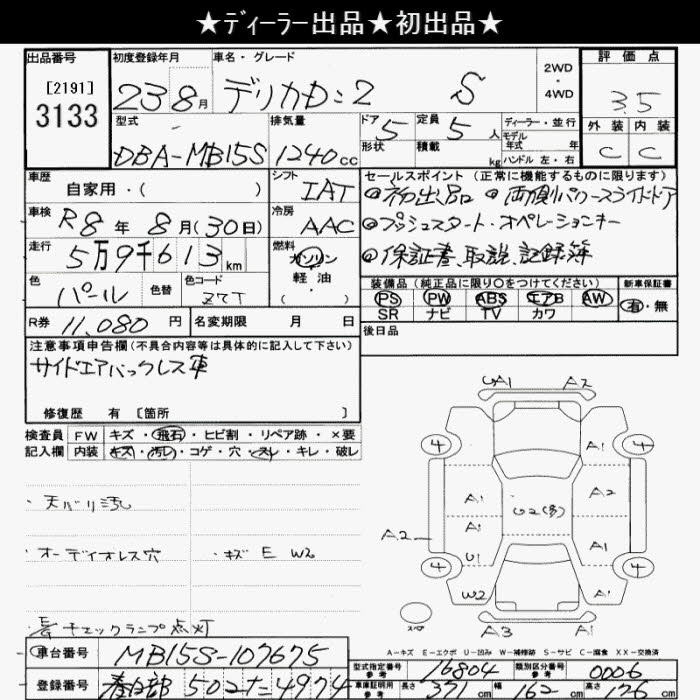 ★ディーラー出品★初出品★
出品番号 初度登録年月 車名・グレード 2WD・4WD 評価点
[2191]
3133 23 8月 デリカD:2 S 3.5
型式 排気量 ドア 5 定員 5人 ディーラー・並行 外装 内装
DBA-MB15S 1240cc 形状 積載 kg モデル年式 年 C C
ハンドル 左・右
車歴 自家用・( ) シフト IAT セールスポイント (正常に機能するものに限ります)
◎初出品 ◎両側パワースライドドア
車検 R8年8月(30日) 冷房 AAC ◎プッシュスタート・オペレーションキー
走行 5万9千613km 燃料 ガソリン・軽油・( ) ◎保証書、取説、記録簿
色 パール 色替 色コード Z7T 装備品 (純正品に限り○をつけてください) 新車保証書
PS PW ABS エアB AW 有・無
SR ナビ TV カワ
R券 11,080円 名変期限 月 日 後日品
注意事項申告欄 (不具合内容等は具体的に記入して下さい)
サイドエアバックレス車
修復歴 有 [箇所 ]
検査員 FW キズ・飛石・ヒビ割・リペア跡・×要
記入欄 内装 キズ・汚レ・コゲ・穴・スレ・キレ・破レ
・天バリ汚
・オーディオレス穴 ・キズ E W2
チェックランプ点灯
A1 A2
4 4
A1
A1 A2
G2(多)
A1
A2 U1 A1
4 4
W2 A1
スペア
A3 A1
A-キズ E-エクボ U-凹み W-補修跡 S-サビ C-腐食 XX-交換済
車台番号 MB15S-107675
型式指定番号 参考 16804 類別区分番号 参考 0006
登録番号 春日部 502 た 4974
車庫証明用 参考 長さ 371cm 幅 162cm 高さ 176cm